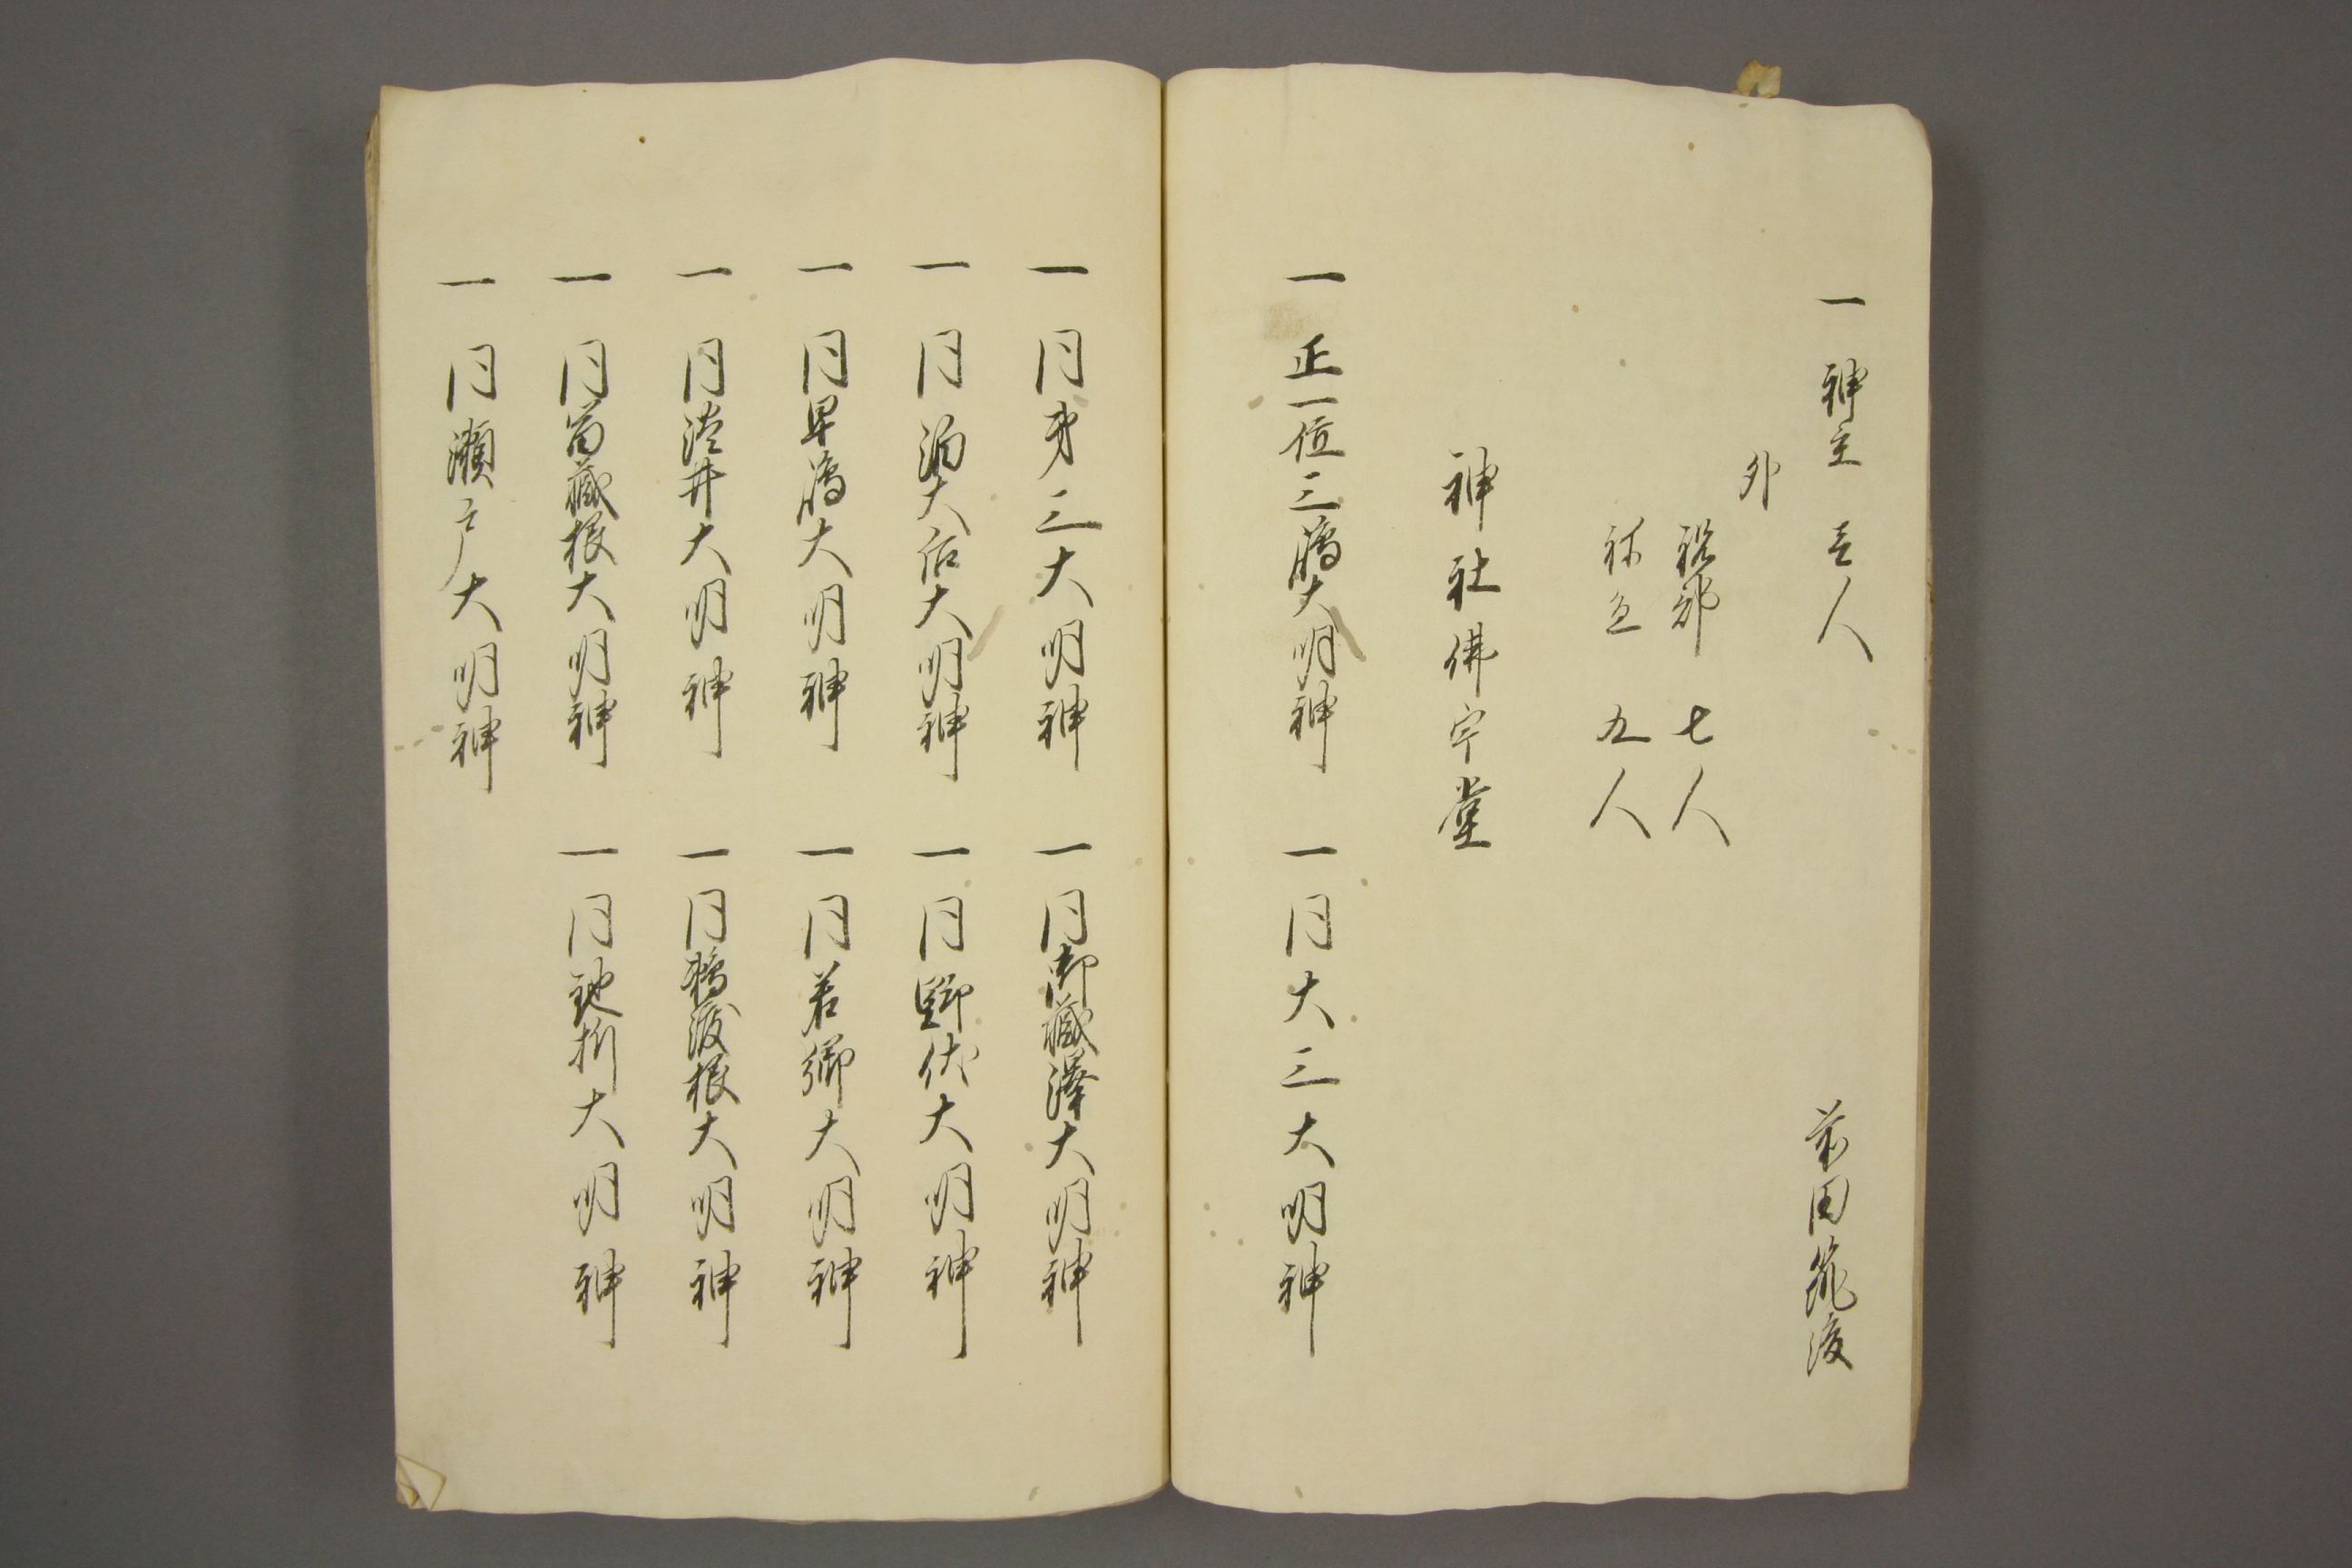 一 神主 壱人 前田筑後
外
祝部 七人
祢宜 五人
神社佛宇堂
一 正一位三嶋大明神
一 同大三大明神
一 同弟三大明神
一 同御蔵澤大明神
一 同泊大后大明神
一 同野伏大明神
一 同早嶋大明神
一 同若郷大明神
一 同井大明神
一 同鵜渡根大明神
一 同蔵根大明神
一 同地大明神
一 同瀬戸大明神